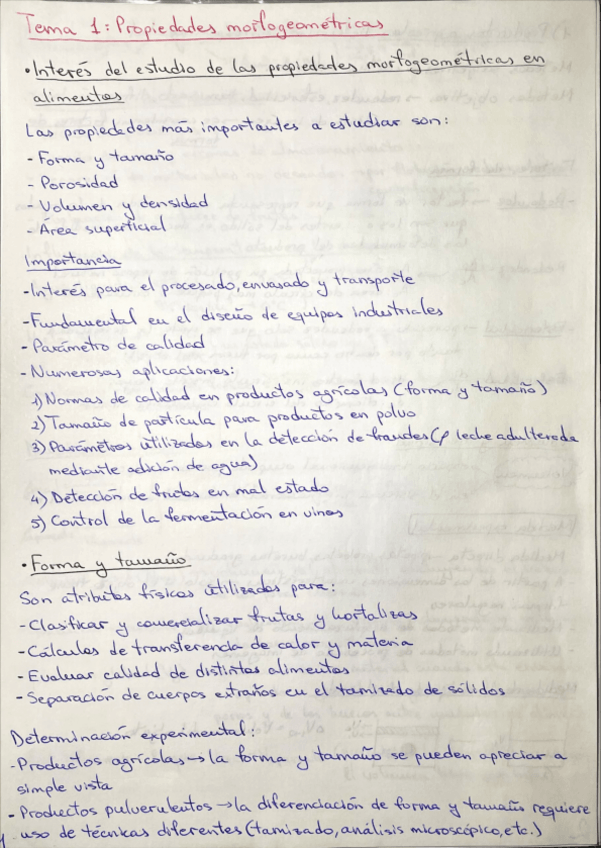 Tema 1: Propiedades morfogeométricas
• Interés del estudio de las propiedades morfogeométricas en
alimentos
Las propiedades más importantes a estudiar son:
- Forma y tamaño
- Porosidad
- Volumen y densidad
- Área superficial
Importancia
- Interés para el procesado, envasado y transporte
- Fundamental en el diseño de equipos industriales
- Parámetro de calidad
- Numerosas aplicaciones:
1) Normas de calidad en productos agrícolas (forma y tamaño)
2) Tamaño de partícula para productos en polvo
3) Parámetros utilizados en la detección de fraudes (ρ leche adulterada
mediante adición de agua)
4) Detección de frutos en mal estado
5) Control de la fermentación en vinos
• Forma y tamaño
Son atributos físicos utilizados para:
- Clasificar y comercializar frutas y hortalizas
- Cálculos de transferencia de calor y materia
- Evaluar calidad de distintos alimentos
- Separación de cuerpos extraños en el tamizado de sólidos
Determinación experimental:
- Productos agrícolas → la forma y tamaño se pueden apreciar a
simple vista
- Productos pulverulentos → la diferenciación de forma y tamaño requiere
uso de técnicas diferentes (tamizado, análisis microscópico, etc.)